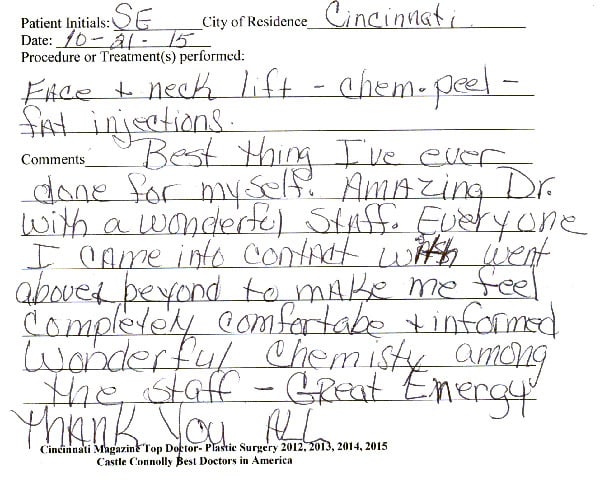 Patient Initials: SE City of Residence Cincinnati
Date: 10-21-15
Procedure or Treatment(s) performed:
Face + neck lift - chem. peel -
fat injections.
Comments Best thing I've ever
done for myself. Amazing Dr.
with a wonderful staff. Everyone
I came into contact with went
above & beyond to make me feel
completely comfortabe + informed
Wonderful Chemisty among
the staff - Great Energy
Thank You All
Cincinnati Magazine Top Doctor- Plastic Surgery 2012, 2013, 2014, 2015
Castle Connolly Best Doctors in America